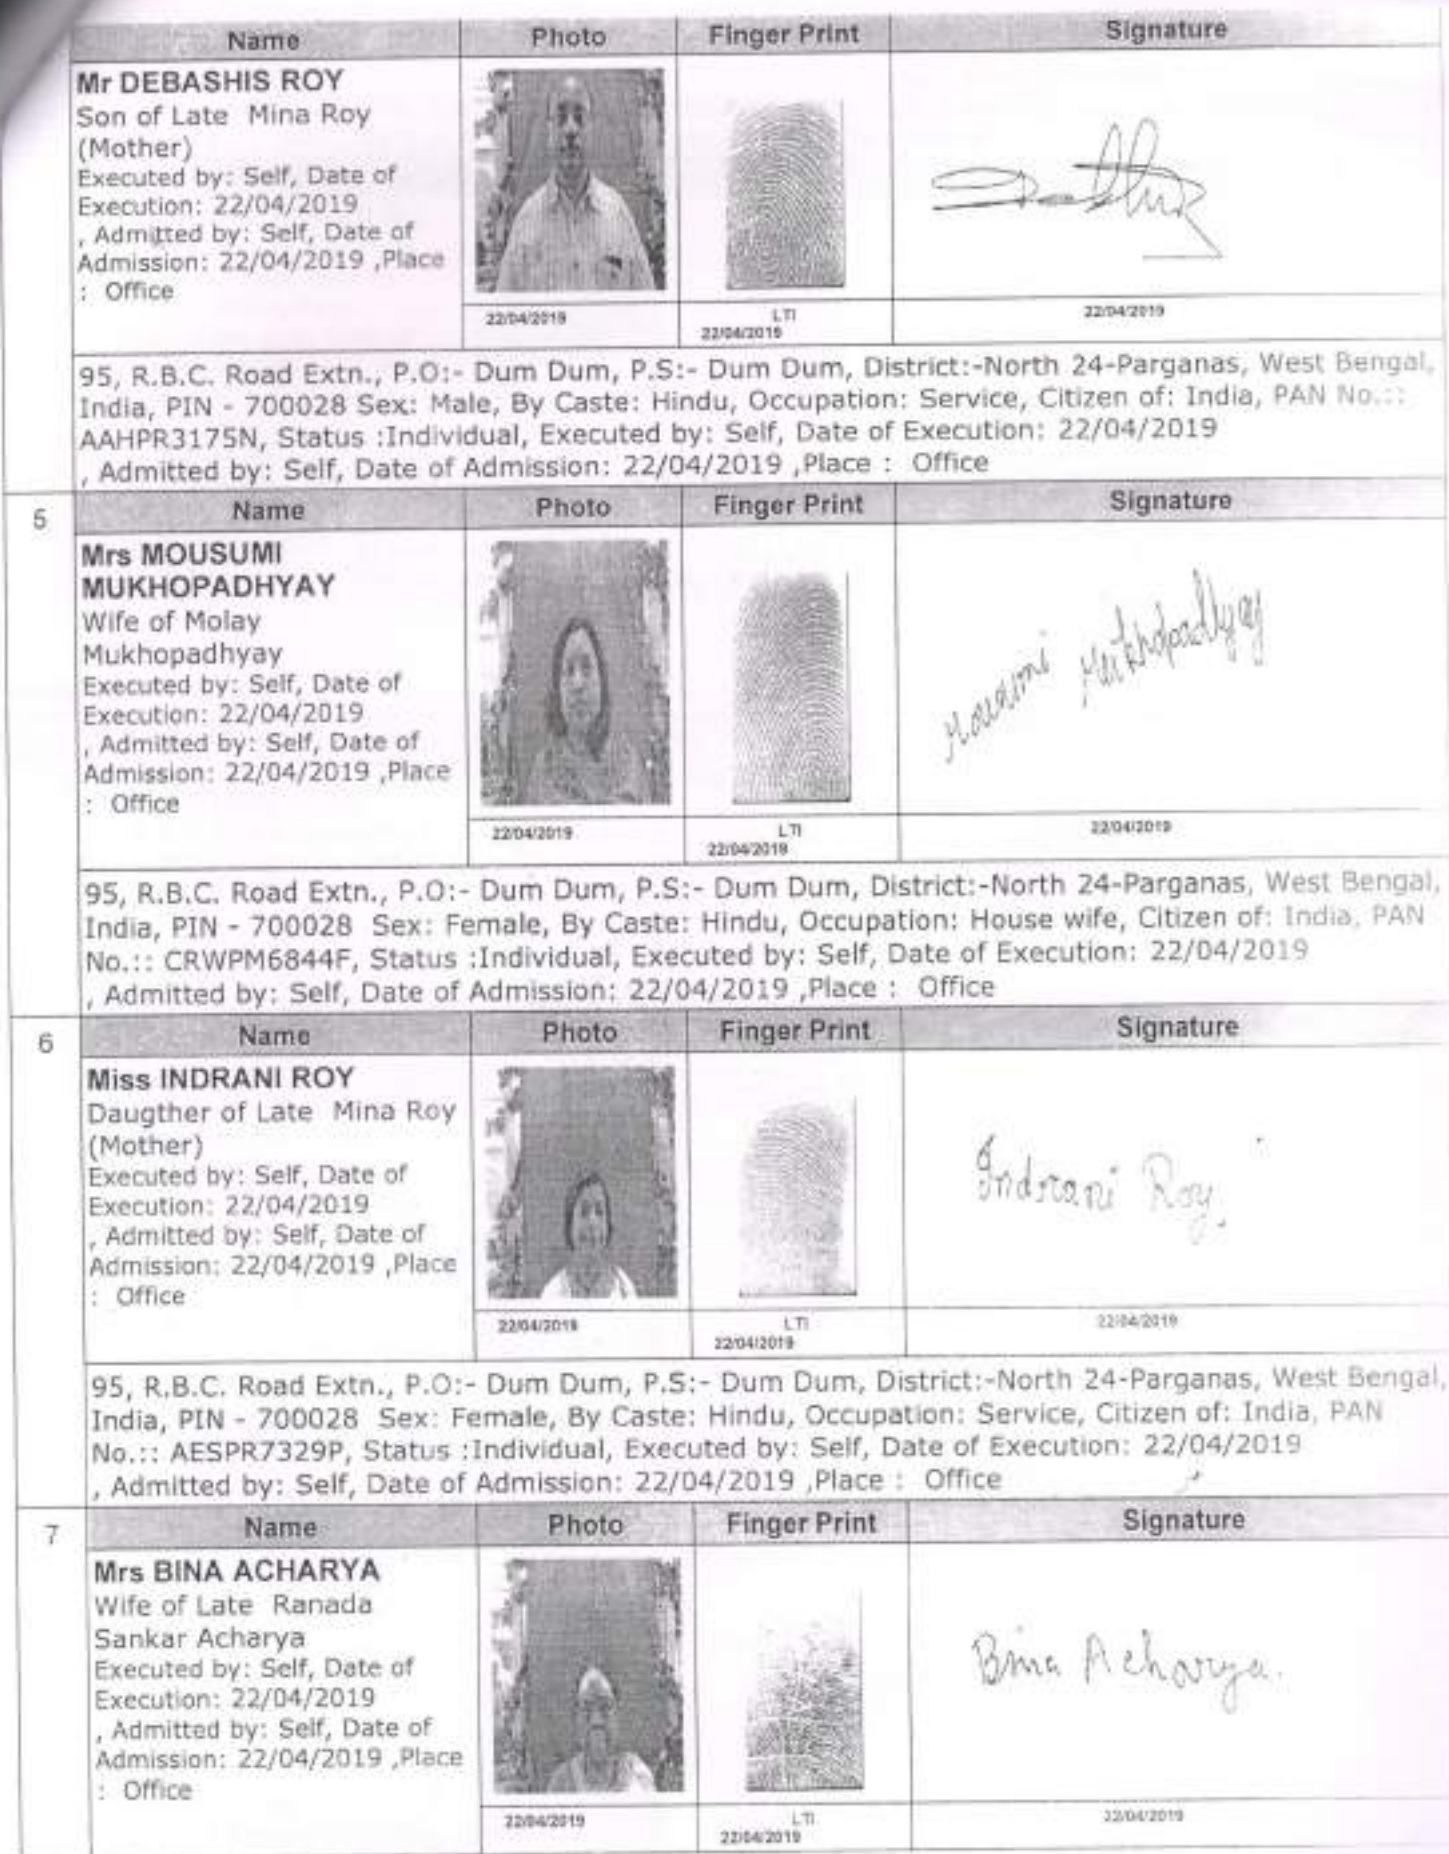 Name Photo Finger Print Signature
Mr DEBASHIS ROY
Son of Late Mina Roy
(Mother)
Executed by: Self, Date of
Execution: 22/04/2019
, Admitted by: Self, Date of
Admission: 22/04/2019 ,Place
: Office
22/04/2019 LTI 22/04/2019
22/04/2019
95, R.B.C. Road Extn., P.O:- Dum Dum, P.S:- Dum Dum, District:-North 24-Parganas, West Bengal,
India, PIN - 700028 Sex: Male, By Caste: Hindu, Occupation: Service, Citizen of: India, PAN No.::
AAHPR3175N, Status :Individual, Executed by: Self, Date of Execution: 22/04/2019
, Admitted by: Self, Date of Admission: 22/04/2019 ,Place : Office
5 Name Photo Finger Print Signature
Mrs MOUSUMI
MUKHOPADHYAY
Wife of Molay
Mukhopadhyay
Executed by: Self, Date of
Execution: 22/04/2019
, Admitted by: Self, Date of
Admission: 22/04/2019 ,Place
: Office
Mousumi Mukhopadhyay
22/04/2019 LTI 22/04/2019
22/04/2019
95, R.B.C. Road Extn., P.O:- Dum Dum, P.S:- Dum Dum, District:-North 24-Parganas, West Bengal,
India, PIN - 700028 Sex: Female, By Caste: Hindu, Occupation: House wife, Citizen of: India, PAN
No.:: CRWPM6844F, Status :Individual, Executed by: Self, Date of Execution: 22/04/2019
, Admitted by: Self, Date of Admission: 22/04/2019 ,Place : Office
6 Name Photo Finger Print Signature
Miss INDRANI ROY
Daugther of Late Mina Roy
(Mother)
Executed by: Self, Date of
Execution: 22/04/2019
, Admitted by: Self, Date of
Admission: 22/04/2019 ,Place
: Office
Indrani Roy.
22/04/2019 LTI 22/04/2019
22/04/2019
95, R.B.C. Road Extn., P.O:- Dum Dum, P.S:- Dum Dum, District:-North 24-Parganas, West Bengal,
India, PIN - 700028 Sex: Female, By Caste: Hindu, Occupation: Service, Citizen of: India, PAN
No.:: AESPR7329P, Status :Individual, Executed by: Self, Date of Execution: 22/04/2019
, Admitted by: Self, Date of Admission: 22/04/2019 ,Place : Office
7 Name Photo Finger Print Signature
Mrs BINA ACHARYA
Wife of Late Ranada
Sankar Acharya
Executed by: Self, Date of
Execution: 22/04/2019
, Admitted by: Self, Date of
Admission: 22/04/2019 ,Place
: Office
Bina Acharya.
22/04/2019 LTI 22/04/2019
22/04/2019